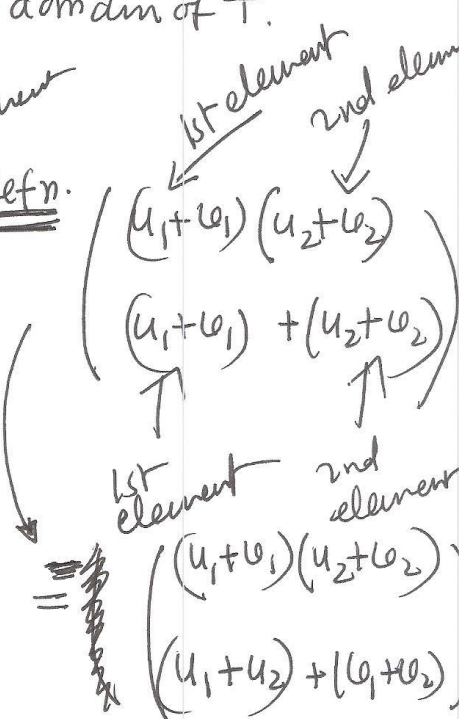 domain of T.
1st element 2nd elem
ment
efn.
(u₁+ω₁)(u₂+ω₂)
(u₁+ω₁) +(u₂+ω₂)
1st element 2nd element
= (u₁+ω₁)(u₂+ω₂)
(u₁+u₂) +(ω₁+ω₂)